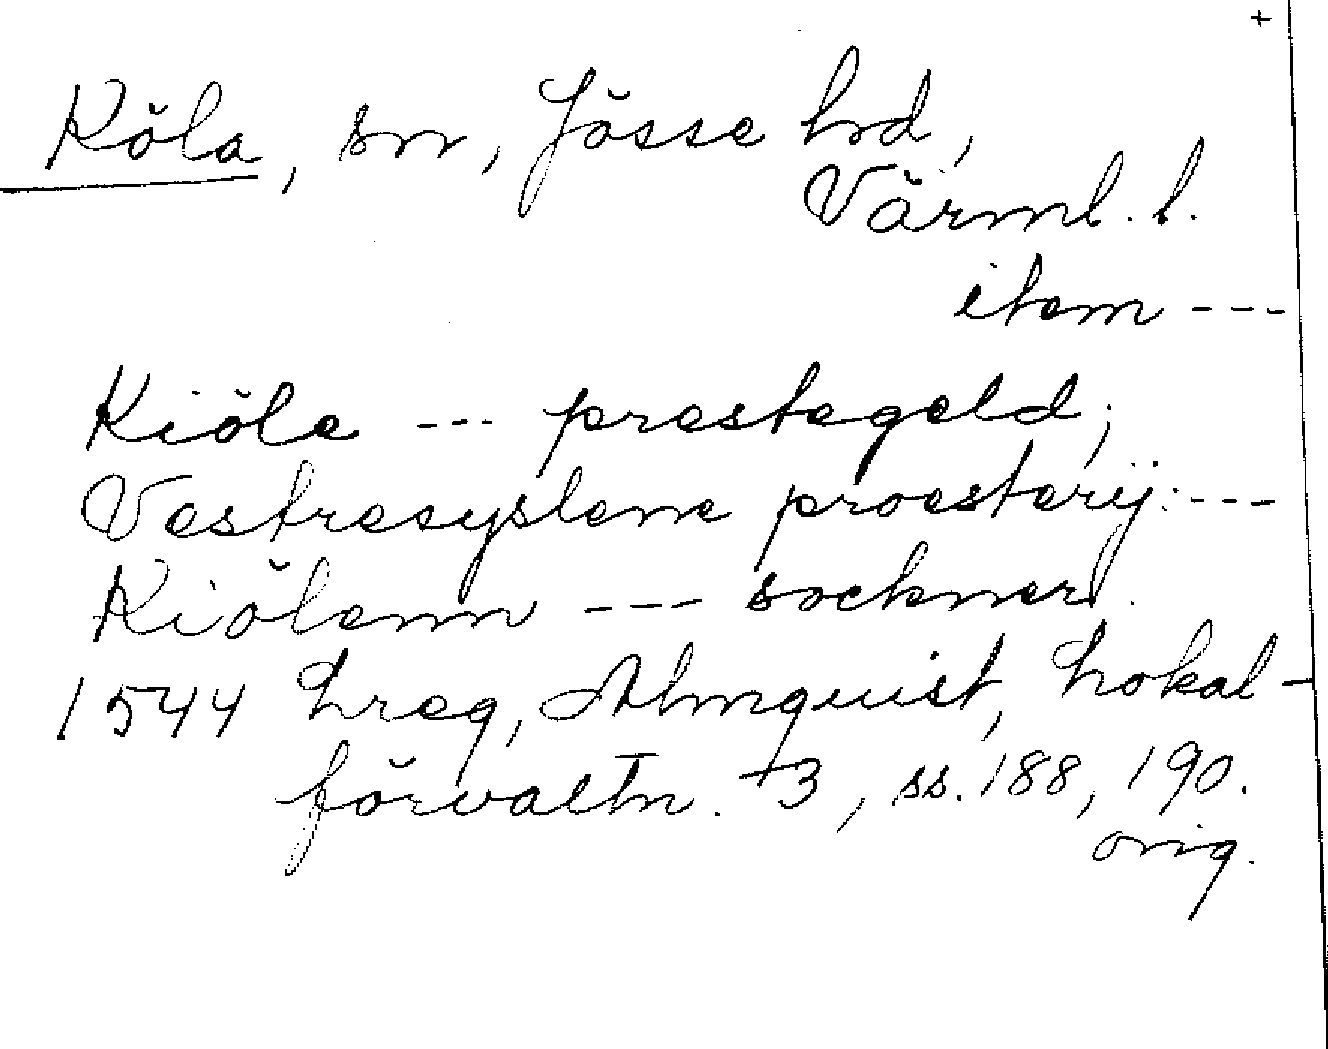 +
Köla, sn, Jösse hd,
Värml. l.
item ---
Kiöle --- prestegeld;
Vestresyslene proesterij: ---
Kiölenn --- sockner.
1544 Lreg, Almquist, Lokal-
förvaltn. +3, ss. 188, 190.
orig.